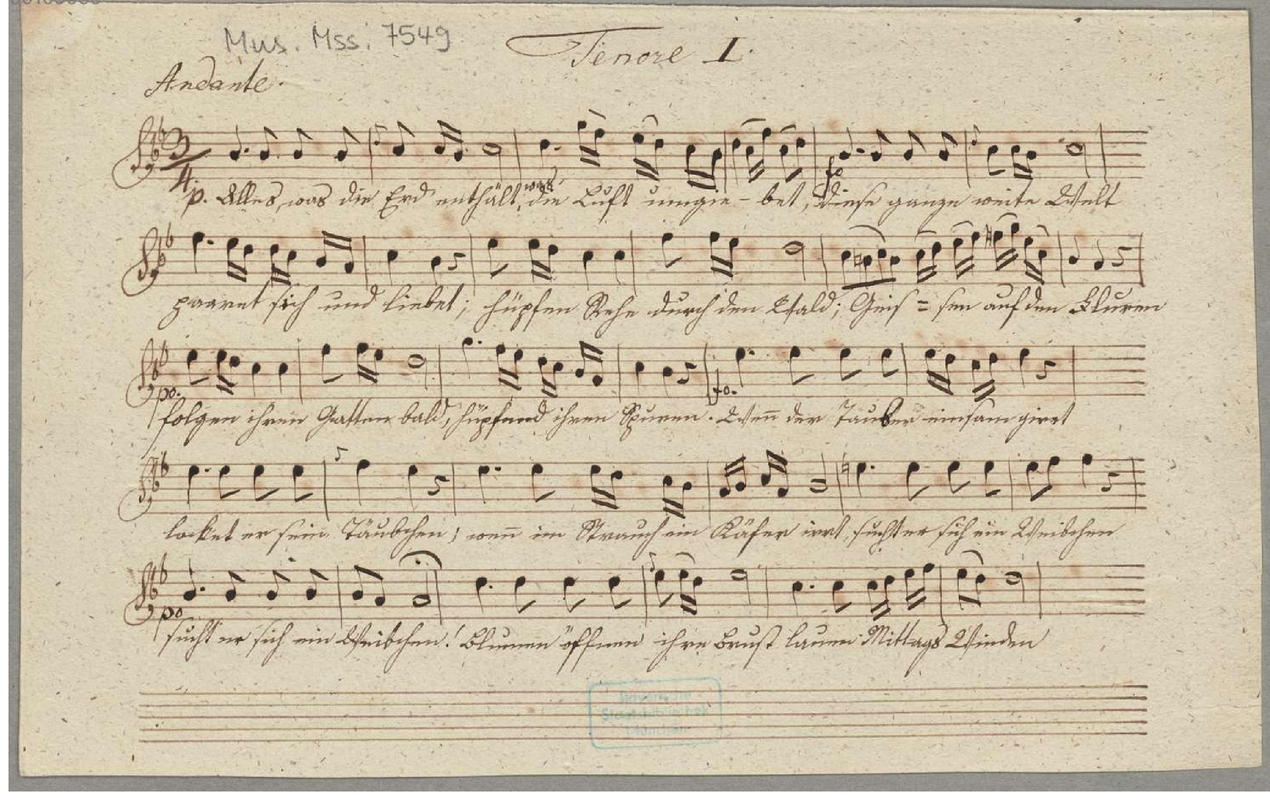 Mus. Mss. 7549
Tenore I.
Andante.
p. Alles, was die Erd enthält, was die Luft umgie - bet, fo diese ganze weite Welt
paaret sich und liebet; hüpfen Rehe durch den Wald; Geis = sen auf den Fluren
po. folgen ihren Gatten bald, hüpfend ihren Spuren. fo. Wenn der Tauber einsam girrt
locket er sein Täubchen; wenn im Strauch ein Käfer irrt, sucht er sich ein Weibchen
po sucht er sich ein Weibchen! Blumen öffnen ihre Brust lauen Mittags Winden
Bayerische
Staatsbibliothek
München